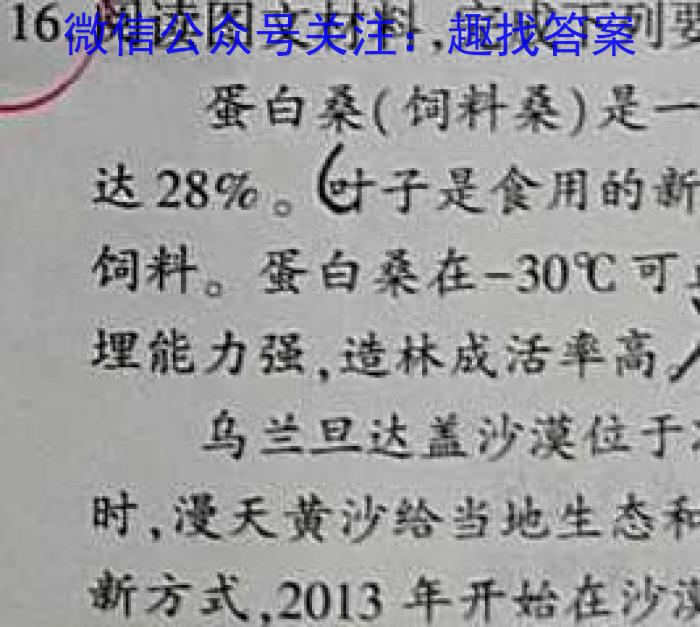 16 阅读图文材料,完成下列要
微信公众号关注:趣找答案
蛋白桑(饲料桑)是一
达28%。叶子是食用的新
饲料。蛋白桑在-30℃可
埋能力强,造林成活率高
乌兰旦达盖沙漠位于
时,漫天黄沙给当地生态和
新方式,2013年开始在沙漠